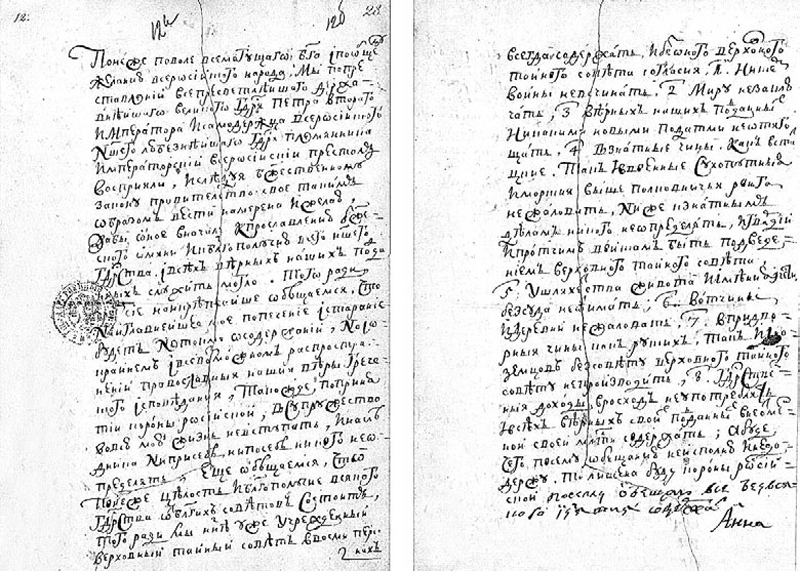 12.
12и
12б
28
Понеже поволе всемагущаго бга і пообще
желанию всеросіиского народа, мы попре
ставлениі всепресветлеишаго держа
внеишаго великого гдря петра второго
императора и самодержца всеросіиского
ншего любезнеишаго гдря племянника
императорскиі всеросіискиі престолъ
восприяли, и следуя бжественному
закону правителство свое такимъ
ѡбразомъ вести намерена и желаю,
дабы ѡное вначале кпрославлению бже-
ского имяни и кблагополучию всего ншего
гдрства і всехъ верныхъ нашихъ подда
ныхъ служить могло. Того ради
сие наикрепчаише ѡбещаемся, что
наиглавнеишее мое попечение и старание
будетъ нетокмо ѡсодержаниі, но і ѡ
краинемъ і всевозможномъ распростра-
нениі православныя нашия веры грече-
ского исповедания, такожде, поприня
тиі короны росіискои, всупружество
вовсю мою жизнь невступать, і наслѣ
дника ниприсебе, нипосебе никого неѡ-
пределять, Еще ѡбещаемся, что
понеже целость и благополучие всякого
гдрства ѡтблагихъ советовъ состоитъ,
того ради мы ныне уже учрежденныі
верховныі таиныі советъ восми пер-
нахъ
всегда содержать, и безоного верховного
таиного совета согласия, 1. Нискемъ
воины невсчинать. 2 Миру незаклю
чать, 3 верныхъ нашихъ поданныхъ
никакими новыми податми неѡтяго
щать. 4. Взнатные чины, какъ встат
цкие, такъ и ввоенные сухопутныя
и морския выше полковничья ранга
нежаловать, ниже кзнатнымъ
деламъ никого неѡпределять, и гвардіи
и протчимъ воискамъ быть подведе-
ниемъ верховного таиного совета,
5. Ушляхетства живота и имения и чести
безсуда неѡтымать, 6. вотчины
и деревни нежаловать, 7. впридво-
рныя чины какъ руских, такъ и ино
земцовъ безсовету верховного таиного
совету непроизводить, 8. гдрстве-
ныя доходы врасходъ неупотреблять
и всехъ верныхъ своих поданныхъ внеѡтме-
ннои своеи млсти содержать; а буде
чего, посему ѡбещанию неисполню и недо-
держу, то лишена буду короны росіи-
скои
посему обещаю все безвся-
кого изъятия содержать
Анна